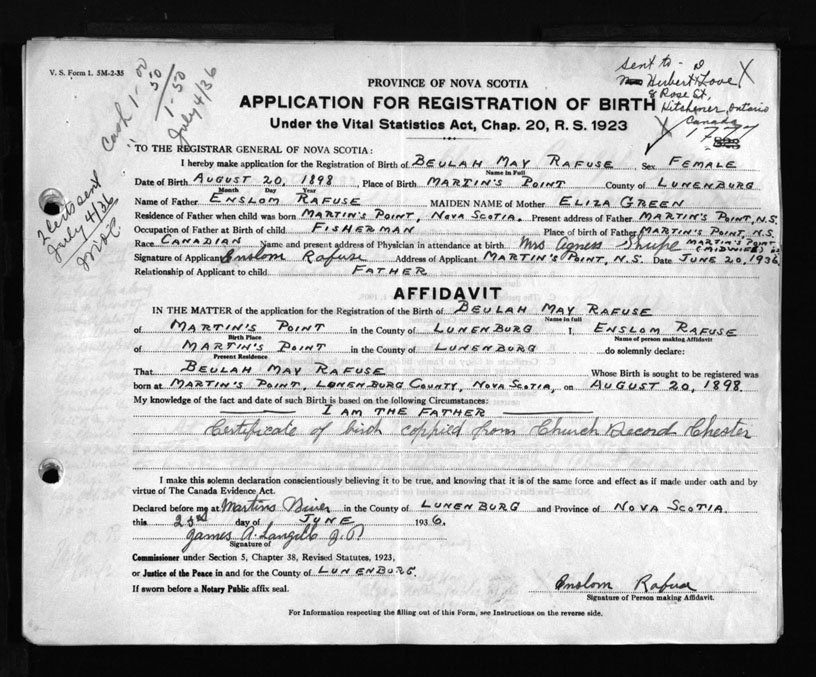 V. S. Form 1. 5M-2-35
Cash 1-00
50
1-50
July 4/36
2 Certs sent
July 4/36
sent to -
Herbert Love
8 Rose St,
Kitchener, Ontario
Canada
1777
PROVINCE OF NOVA SCOTIA
APPLICATION FOR REGISTRATION OF BIRTH
Under the Vital Statistics Act, Chap. 20, R. S. 1923
TO THE REGISTRAR GENERAL OF NOVA SCOTIA:
I hereby make application for the Registration of Birth of BEULAH MAY RAFUSE Sex FEMALE
Name in Full
Date of Birth AUGUST 20, 1898, Place of Birth MARTIN'S POINT County of LUNENBURG
Month Day Year
Name of Father ENSLOM RAFUSE MAIDEN NAME of Mother ELIZA GREEN
Residence of Father when child was born MARTIN'S POINT, NOVA SCOTIA. Present address of Father MARTIN'S POINT, N.S.
Occupation of Father at Birth of child FISHERMAN Place of birth of Father MARTIN'S POINT, N.S.
Race CANADIAN Name and present address of Physician in attendance at birth Mrs Agness Shupe MARTIN'S POINT (MIDWIFE) N.S.
Signature of Applicant Enslom Rafuse Address of Applicant MARTIN'S POINT, N.S. Date JUNE 20, 1936.
Relationship of Applicant to child FATHER
AFFIDAVIT
IN THE MATTER of the application for the Registration of the Birth of BEULAH MAY RAFUSE
Name in full
of MARTIN'S POINT in the County of LUNENBURG I, ENSLOM RAFUSE
Birth Place Name of person making Affidavit
of MARTIN'S POINT in the County of LUNENBURG do solemnly declare:
Present Residence
That BEULAH MAY RAFUSE Whose Birth is sought to be registered was
born at MARTIN'S POINT, LUNENBURG COUNTY, NOVA SCOTIA, on AUGUST 20, 1898.
My knowledge of the fact and date of such Birth is based on the following Circumstances:
I AM THE FATHER
Certificate of birth coppied from Church Record Chester
I make this solemn declaration conscientiously believing it to be true, and knowing that it is of the same force and effect as if made under oath and by
virtue of The Canada Evidence Act.
Declared before me at Martins River in the County of LUNENBURG and Province of NOVA SCOTIA.
this 23rd day of JUNE 1936.
James A. Langille J.P.
Signature of
Commissioner under Section 5, Chapter 38, Revised Statutes, 1923,
or Justice of the Peace in and for the County of LUNENBURG.
If sworn before a Notary Public affix seal.
Enslom Rafuse
Signature of Person making Affidavit.
For Information respecting the filling out of this Form, see Instructions on the reverse side.